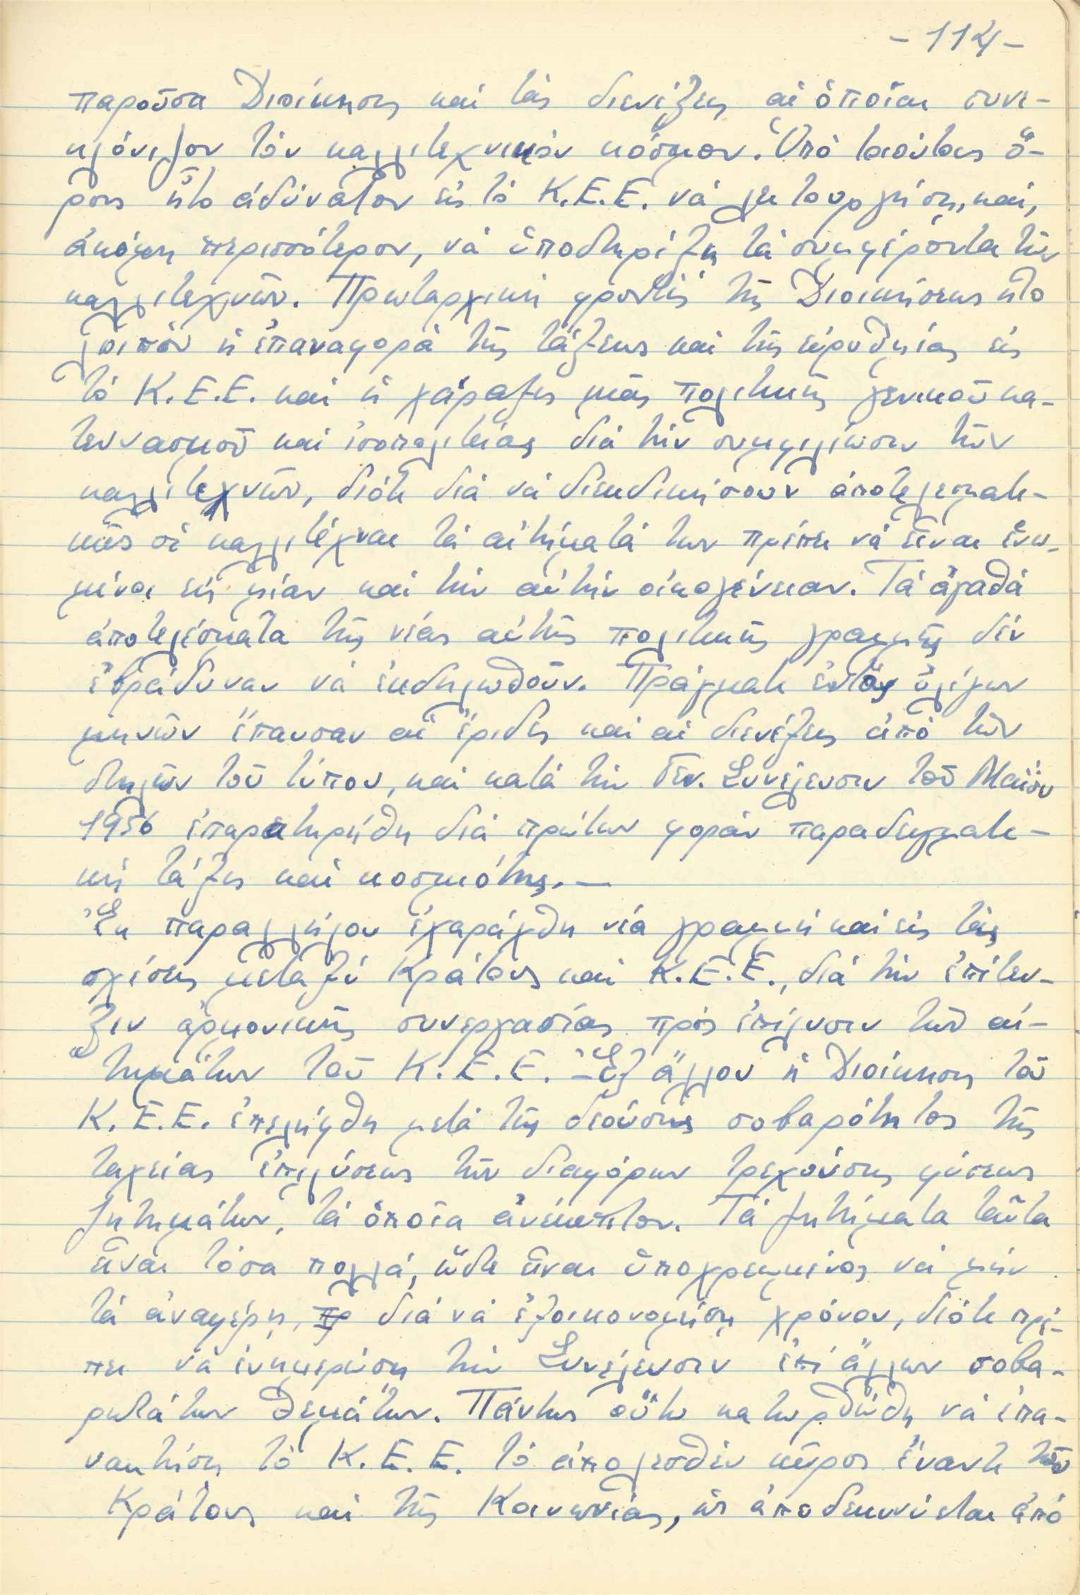 -114-
παροῦσα Διοίκησις καί τάς διενέξεις αἱ ὁποῖαι συνε-
κλόνιζον τόν καλλιτεχνικόν κόσμον. Ὑπό τοιούτους ὅ-
ρους ἦτο ἀδύνατον εἰς τό Κ.Ε.Ε. νά λειτουργήσῃ, καί,
ἀκόμη περισσότερον, νά ὑποστηρίξῃ τά συμφέροντα τῶν
καλλιτεχνῶν. Πρωταρχική φροντίς τῆς Διοικήσεως ἦτο
λοιπόν ἡ ἐπαναφορά τῆς τάξεως καί τῆς εὐρυθμίας εἰς
τό Κ.Ε.Ε. καί ἡ χάραξις μιᾶς πολιτικῆς γενικοῦ κα-
τευνασμοῦ καί ἰσοπολιτείας διά τήν συμφιλίωσιν τῶν
καλλιτεχνῶν, διότι διά νά διεκδικήσουν ἀποτελεσματι-
κῶς οἱ καλλιτέχναι τά αἰτήματά των πρέπει νά εἶναι ἑνω-
μένοι εἰς μίαν καί τήν αὐτήν οἰκογένειαν. Τά ἀγαθά
ἀποτελέσματα τῆς νέας αὐτῆς πολιτικῆς γραμμῆς δέν
ἐβράδυναν νά ἐκδηλωθοῦν. Πράγματι ἐντός ὀλίγων
μηνῶν ἔπαυσαν αἱ ἔριδες καί αἱ διενέξεις ἀπό τῶν
στηλῶν τοῦ τύπου, καί κατά τήν Γεν. Συνέλευσιν τοῦ Μαΐου
1956 ἐπαρατηρήθη διά πρώτην φοράν παραδειγματι-
κή τάξις καί κοσμιότης.-
Ἐκ παραλλήλου ἐχαράχθη νέα γραμμή καί εἰς τάς
σχέσεις μεταξύ Κράτους καί Κ.Ε.Ε., διά τήν ἐπίτευ-
ξιν ἁρμονικῆς συνεργασίας πρός ἐπίλυσιν τῶν αἰ-
τημάτων τοῦ Κ.Ε.Ε. - Ἐξ ἄλλου ἡ Διοίκησις τοῦ
Κ.Ε.Ε. ἐπελήφθη μετά τῆς δεούσης σοβαρότητος τῆς
ταχείας ἐπιλύσεως τῶν διαφόρων τρεχούσης φύσεως
ζητημάτων, τά ὁποῖα ἀνέκυπτον. Τά ζητήματα ταῦτα
εἶναι τόσα πολλά, ὥστε εἶναι ὑποχρεωμένος νά μήν
τά ἀναφέρῃ, διά νά ἐξοικονομήσῃ χρόνον, διότι πρέ-
πει νά ἐνημερώσῃ τήν Συνέλευσιν ἐπί ἄλλων σοβα-
ρωτάτων θεμάτων. Πάντως οὕτω κατωρθώθη νά ἐπα-
νακτήσῃ τό Κ.Ε.Ε. τό ἀπολεσθέν κῦρος ἔναντι τοῦ
Κράτους καί τῆς Κοινωνίας, ὡς ἀποδεικνύεται ἀπό